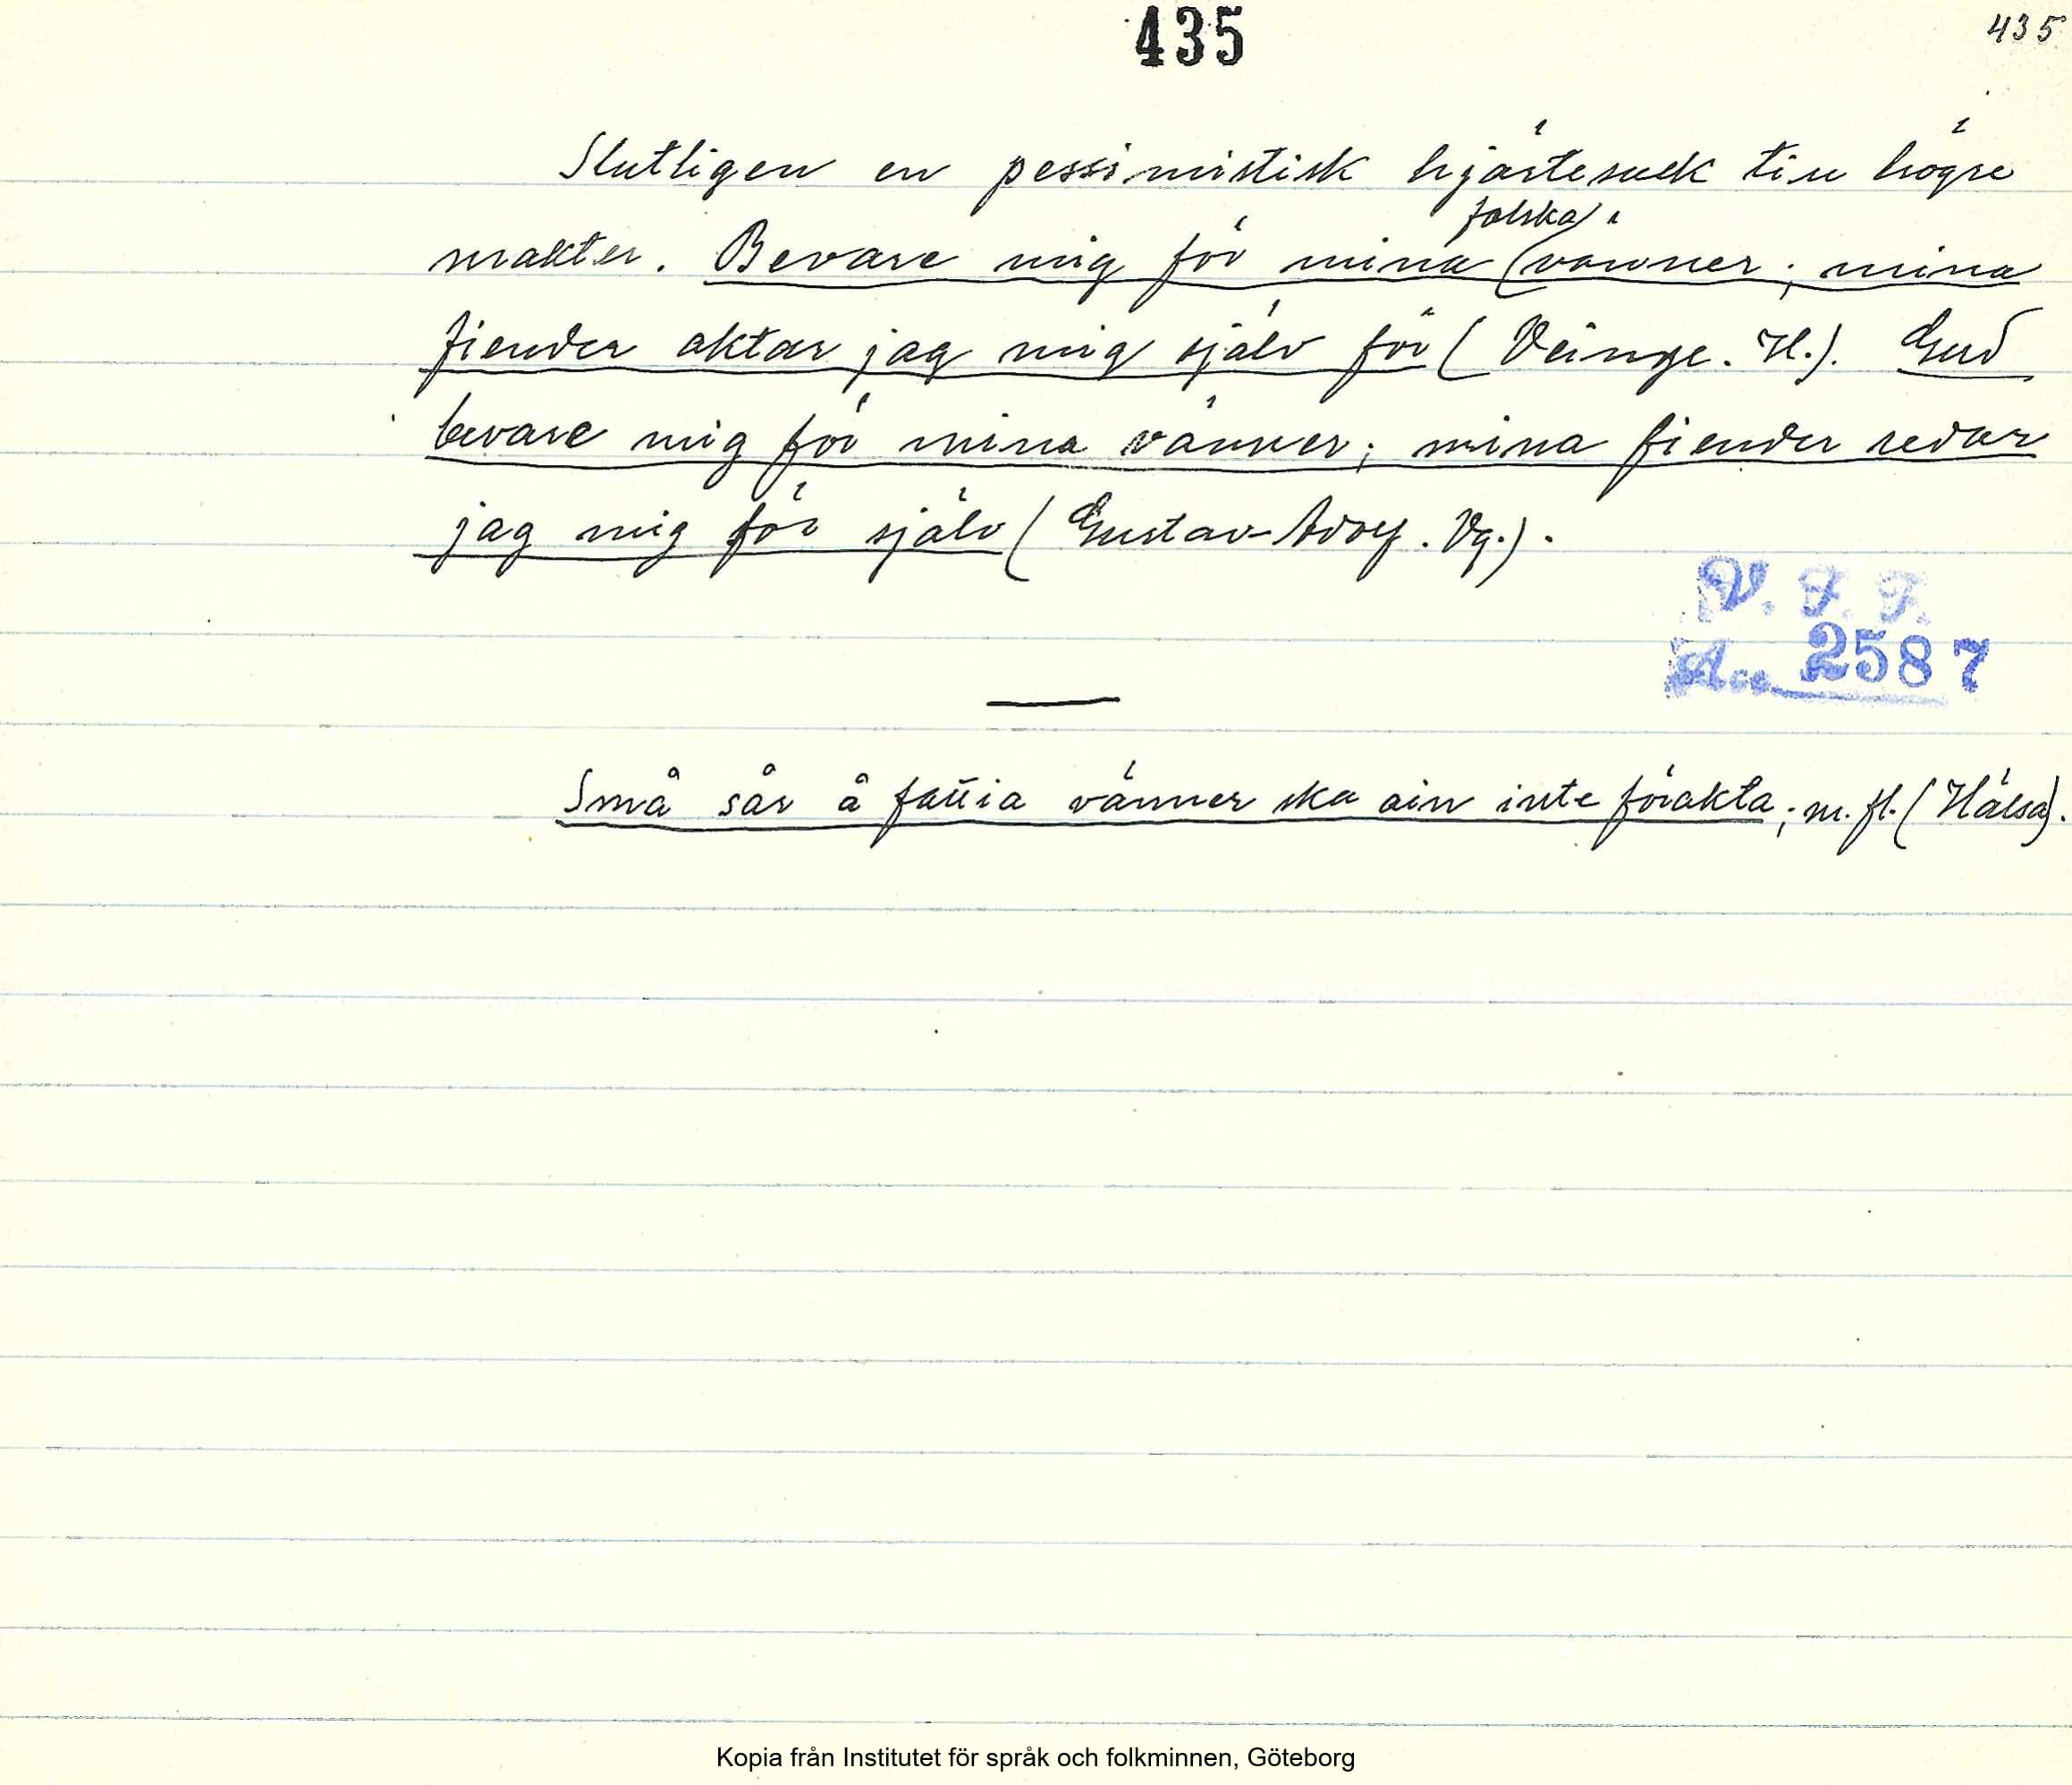 435
435
Slutligen en pessimistisk hjärtesuck till högre
makter. Bevare mig för mina falska vänner; mina
fiender aktar jag mig själv för (Veinge. H.). Gud
bevare mig för mina vänner; mina fiender redar
jag mig för själv (Gustav-Adolf. Vg.).
V. F. F.
Acc. 2587
Små sår å fattia vänner ska ain inte förakta; m. fl. (Hälsa).
Kopia från Institutet för språk och folkminnen, Göteborg